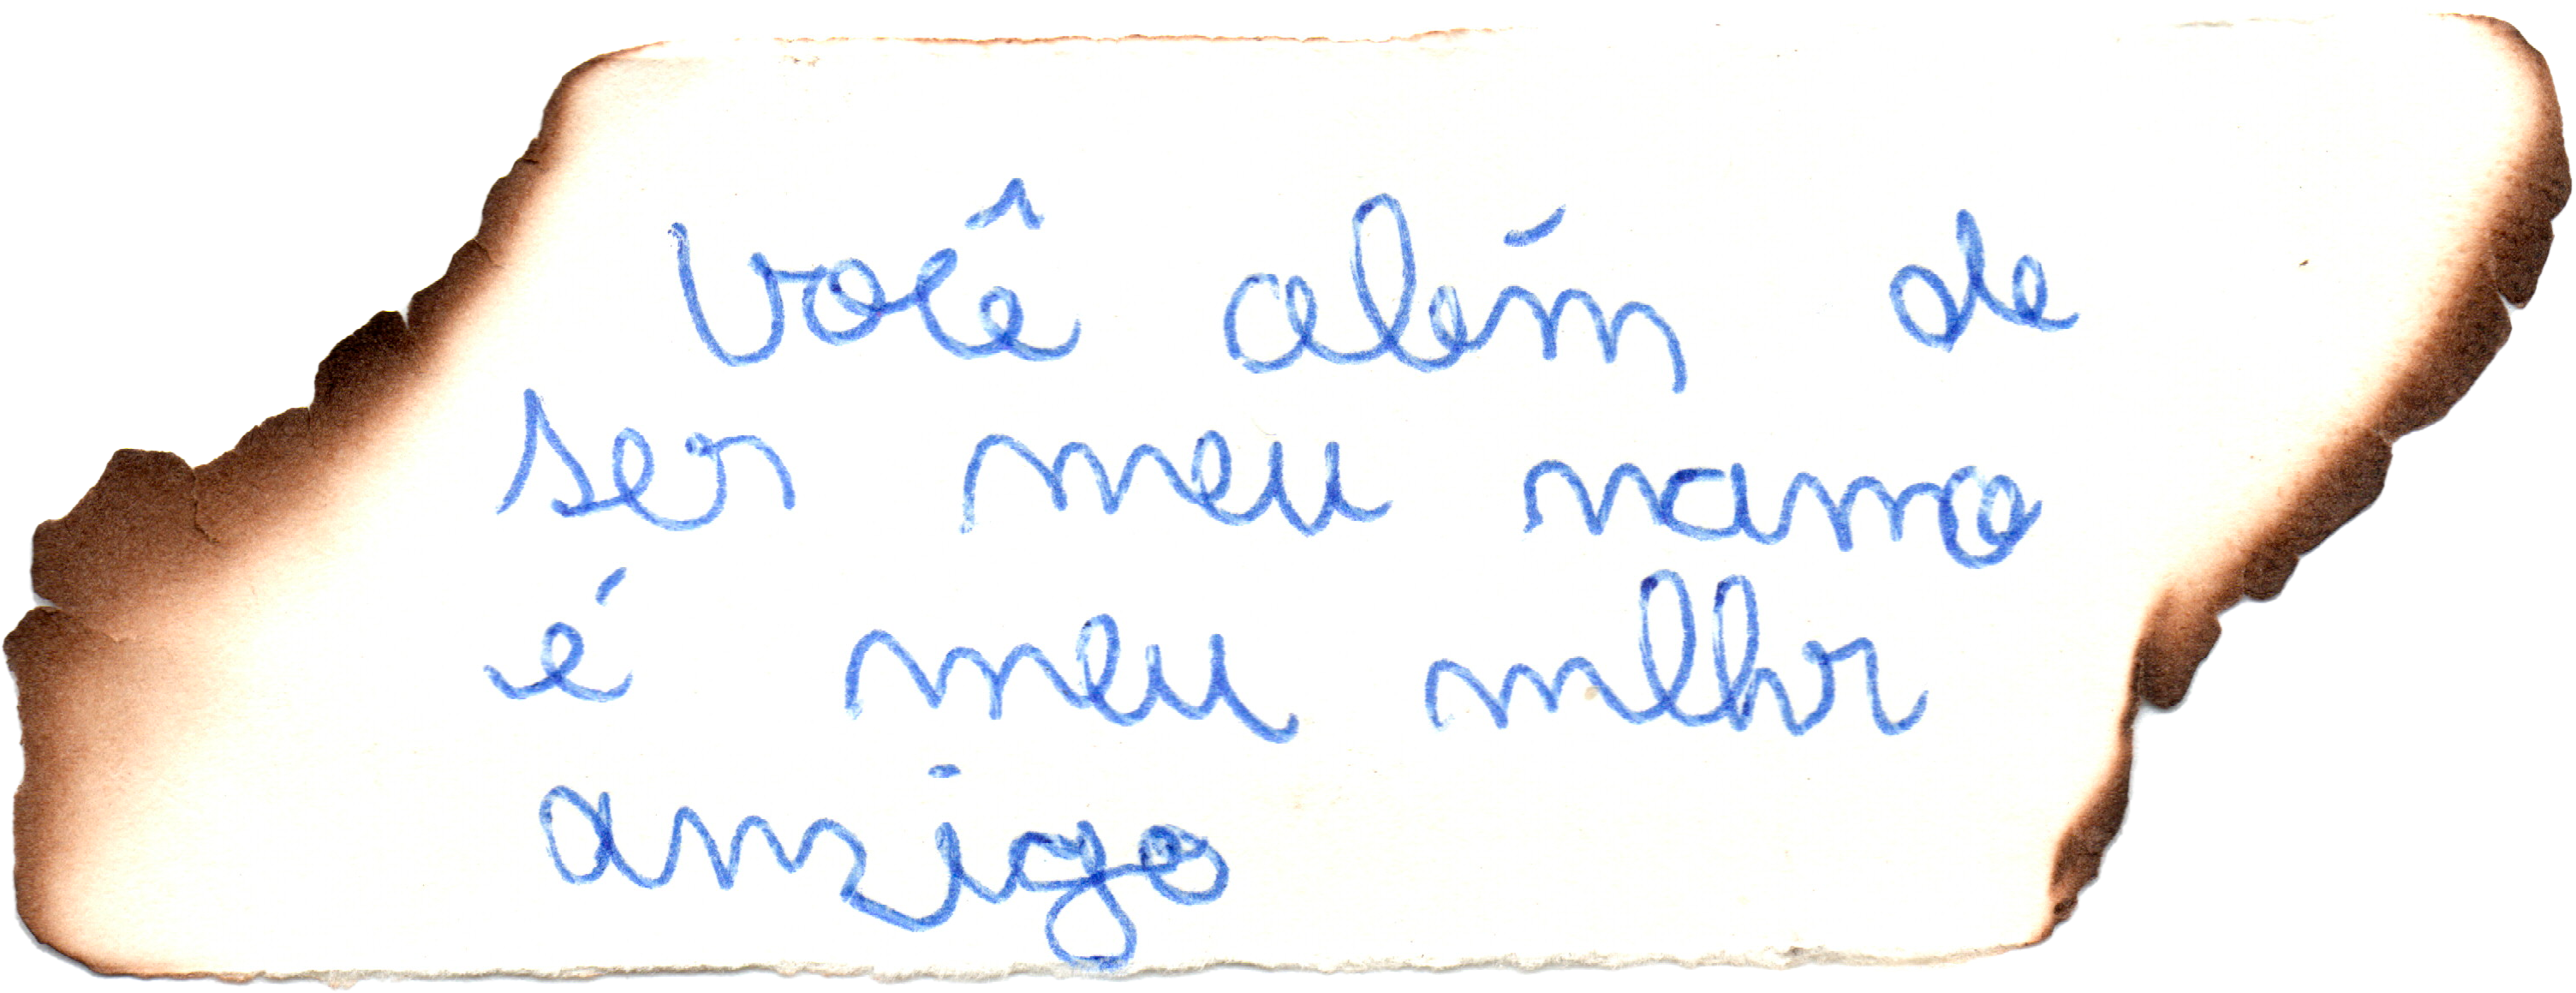 Você além de
ser meu namo
é meu mlhr
amigo